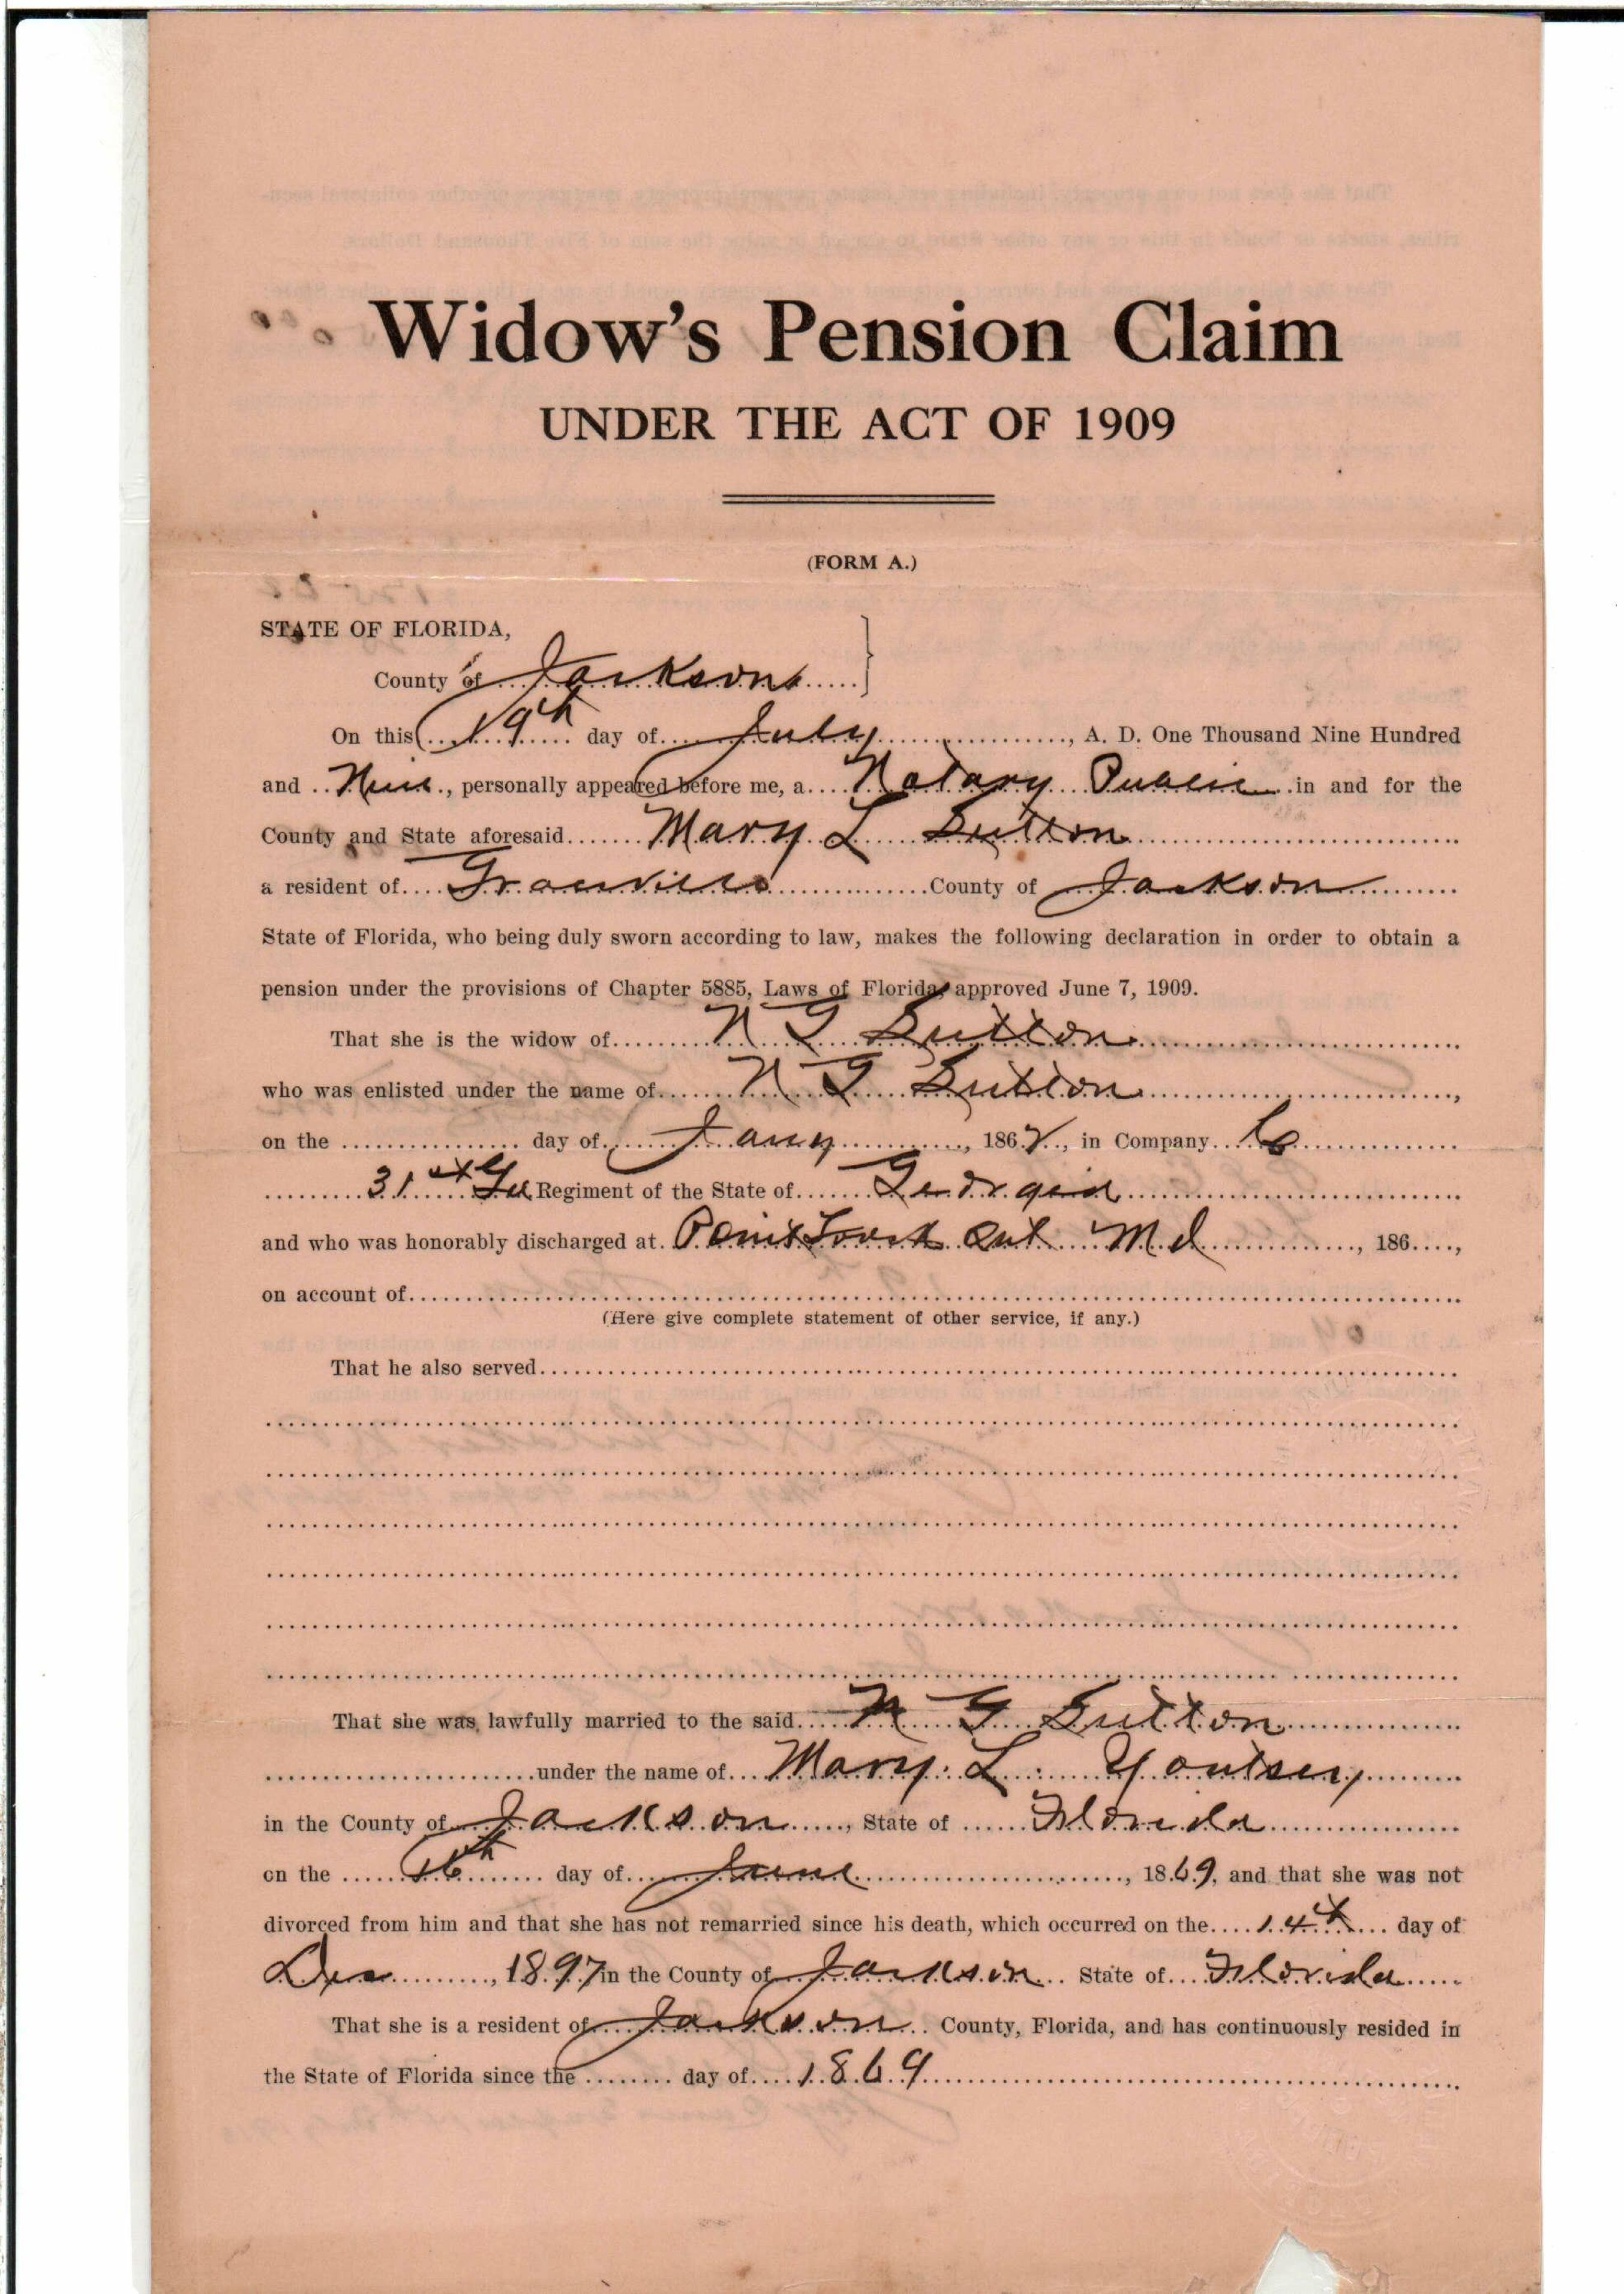 Widow's Pension Claim
UNDER THE ACT OF 1909
(FORM A.)
STATE OF FLORIDA,
County of Jackson
On this 19th day of July, A. D. One Thousand Nine Hundred
and Nine, personally appeared before me, a Notary Public in and for the
County and State aforesaid Mary L Sutton
a resident of County of Jackson
State of Florida, who being duly sworn according to law, makes the following declaration in order to obtain a
pension under the provisions of Chapter 5885, Laws of Florida, approved June 7, 1909.
That she is the widow of N G Sutton
who was enlisted under the name of N G Sutton,
on the day of Jany, 1862, in Company
31st Regiment of the State of Georgia
and who was honorably discharged at Point Md, 186,
on account of
(Here give complete statement of other service, if any.)
That he also served
That she was lawfully married to the said N G Sutton
under the name of Mary L.
in the County of Jackson, State of Florida
on the 16th day of June, 1869, and that she was not
divorced from him and that she has not remarried since his death, which occurred on the 14th day of
Dec, 1897 in the County of Jackson State of Florida
That she is a resident of Jackson County, Florida, and has continuously resided in
the State of Florida since the day of 1869